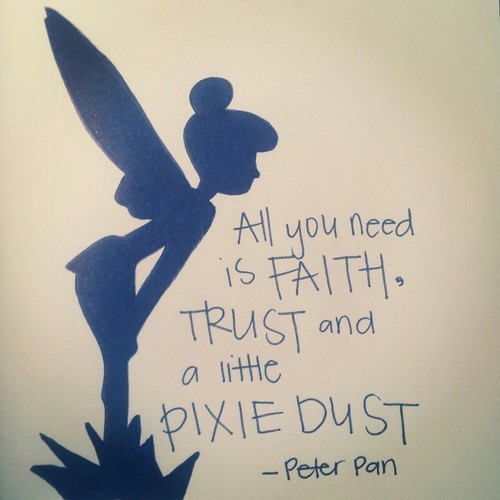 All you need
is FAITH,
TRUST and
a little
PIXIE DUST
- Peter Pan